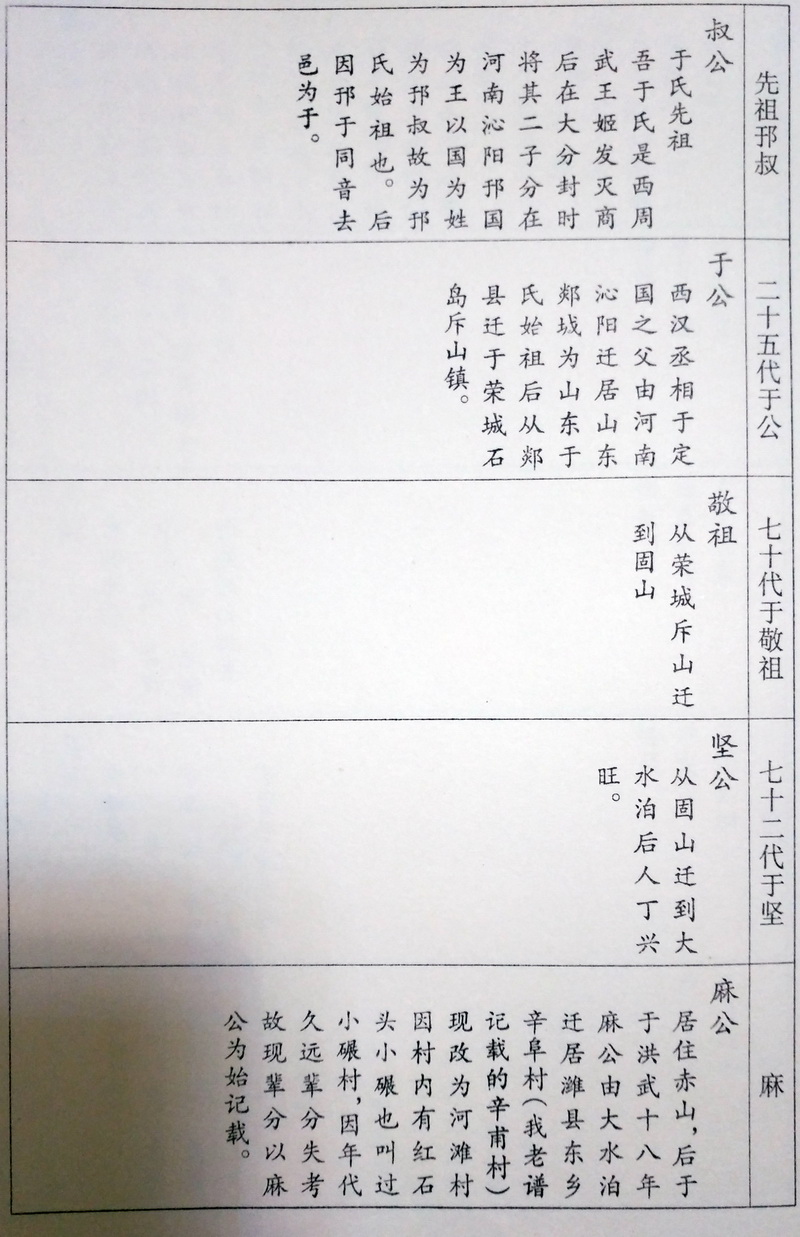 先祖邘叔
叔公
于氏先祖
吾于氏是西周
武王姬发灭商
后在大分封时
将其二子分在
河南沁阳邘国
为王以国为姓
为邘叔故为邘
氏始祖也。后
因邘于同音去
邑为于。
二十五代于公
于公
西汉丞相于定
国之父由河南
沁阳迁居山东
郯城为山东于
氏始祖后从郯
县迁于荣城石
岛斥山镇。
七十代于敬祖
敬祖
从荣城斥山迁
到固山
七十二代于坚
坚公
从固山迁到大
水泊后人丁兴
旺。
麻
麻公
居住赤山，后于
于洪武十八年
麻公由大水泊
迁居潍县东乡
辛阜村（我老谱
记载的辛甫村）
现改为河滩村
因村内有红石
头小碾也叫过
小碾村，因年代
久远辈分失考
故现辈分以麻
公为始记载。